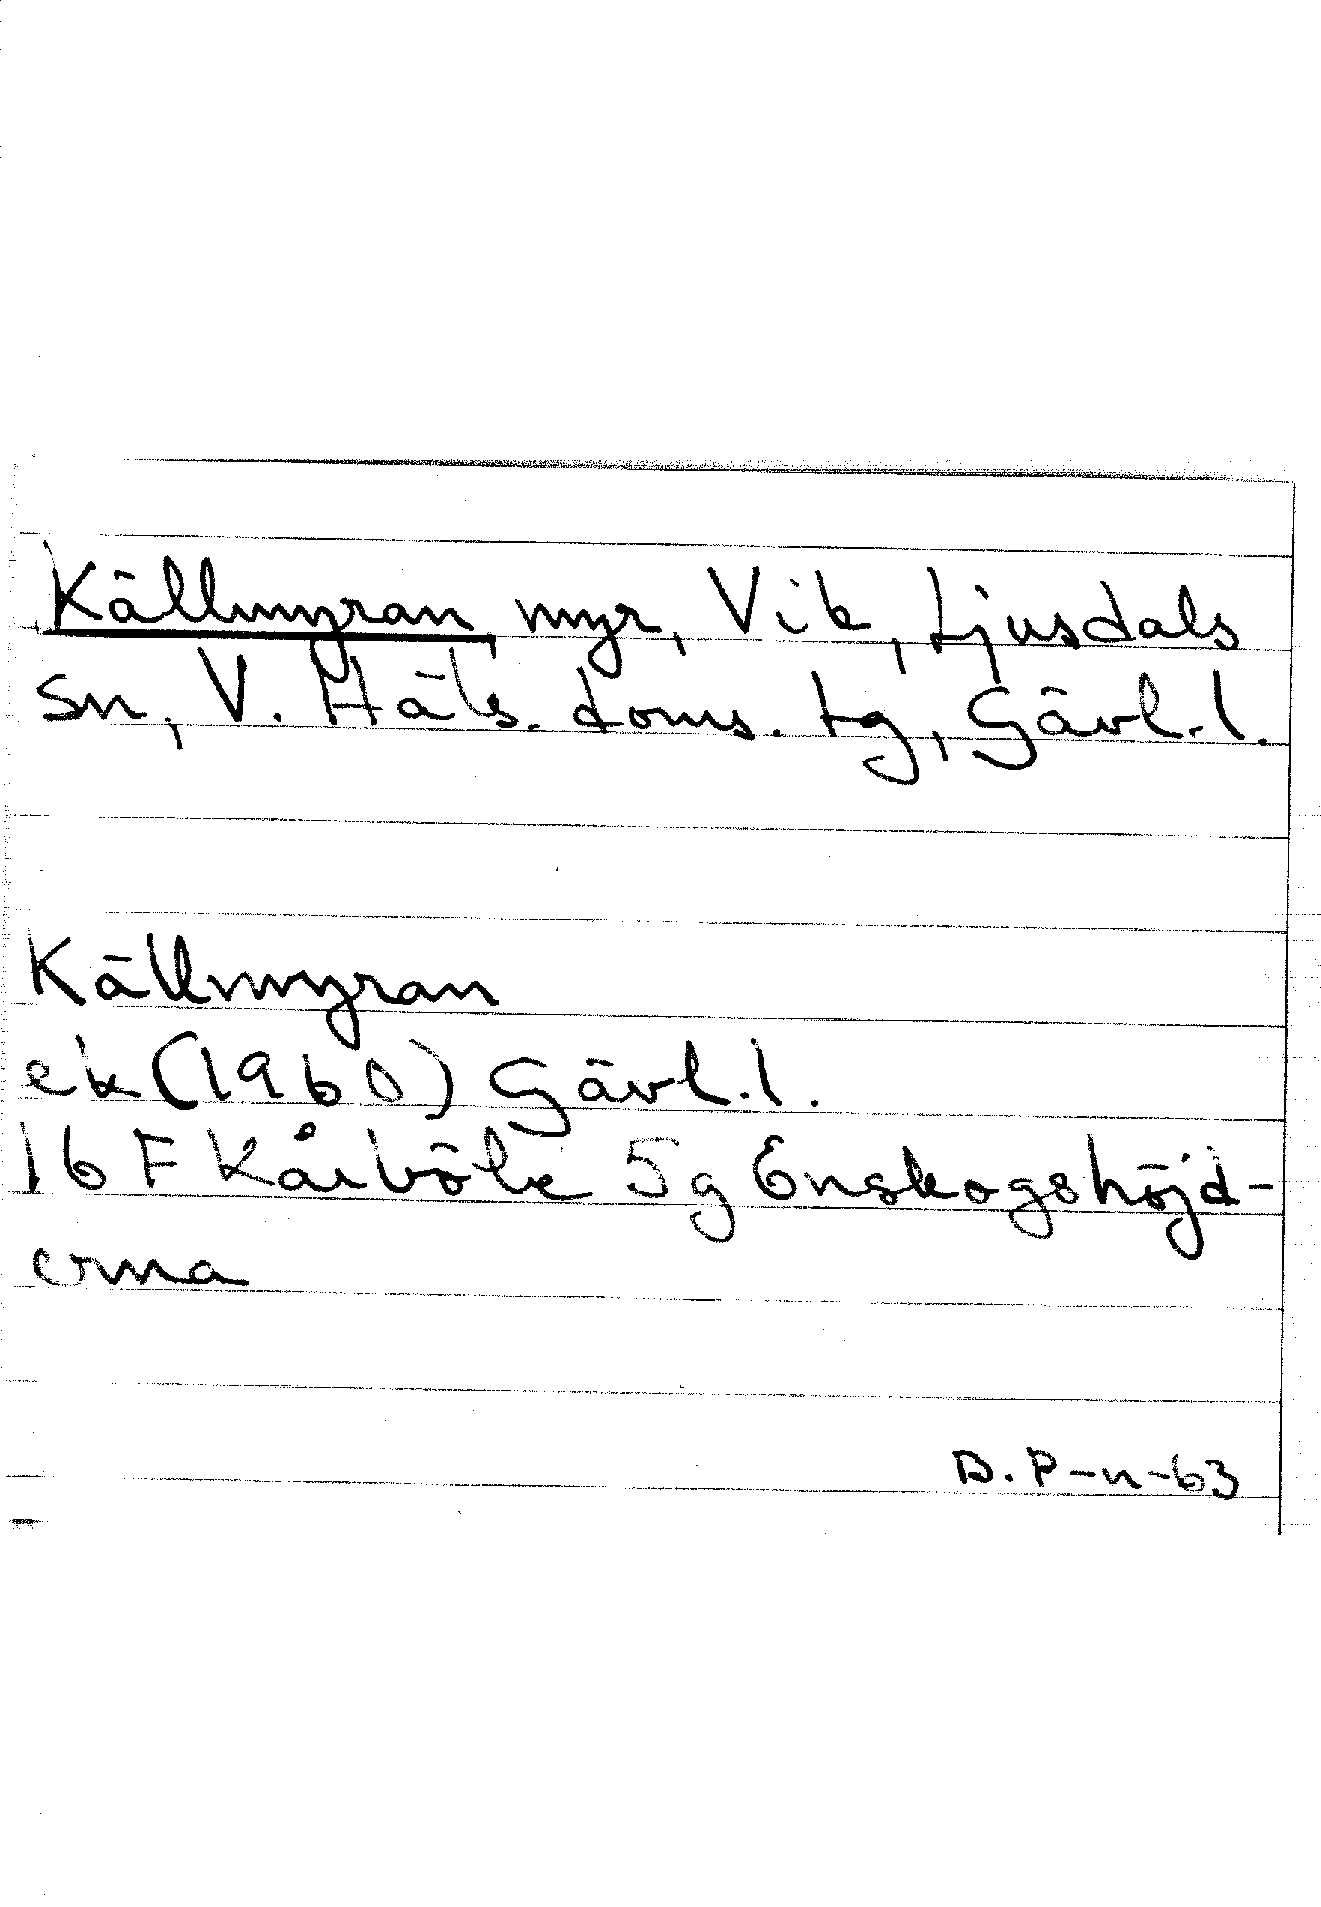 Källmyran myr, Vik, Ljusdals
sn, V. Häls. doms. tg, Gävl. l.
Källmyran
ek (1960) Gävl. l.
16 F Kårböle 5g Enskogshöjd-
erna
D. P-n-63